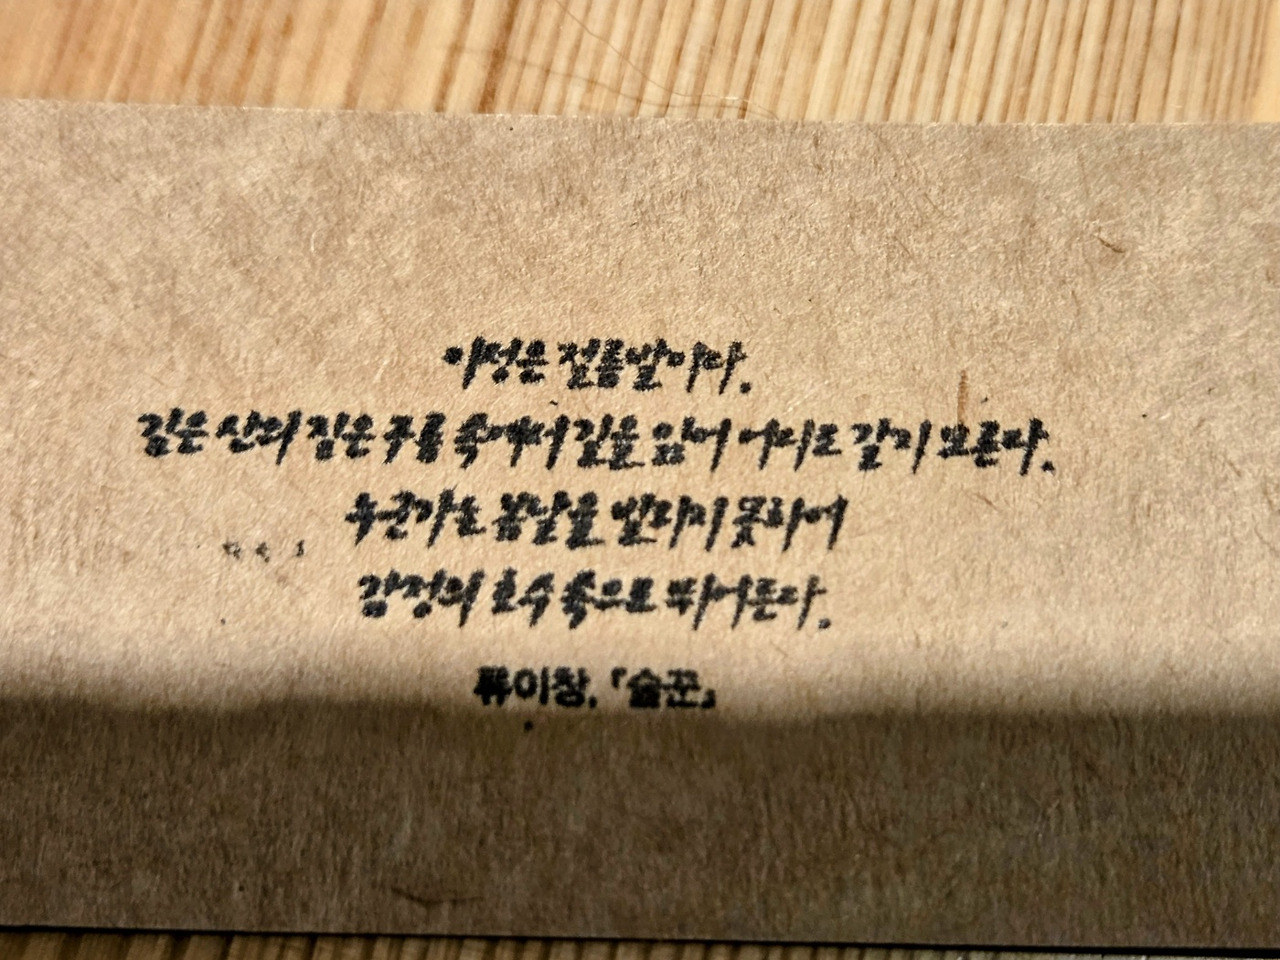 이성은 절름발이다.
깊은 산의 짙은 구름 속에서 길을 잃어 어디도 갈지 모른다.
누군가는 봄날을 버리지 못하여
감정의 호수 속으로 뛰어든다.
류이창, 「술꾼」